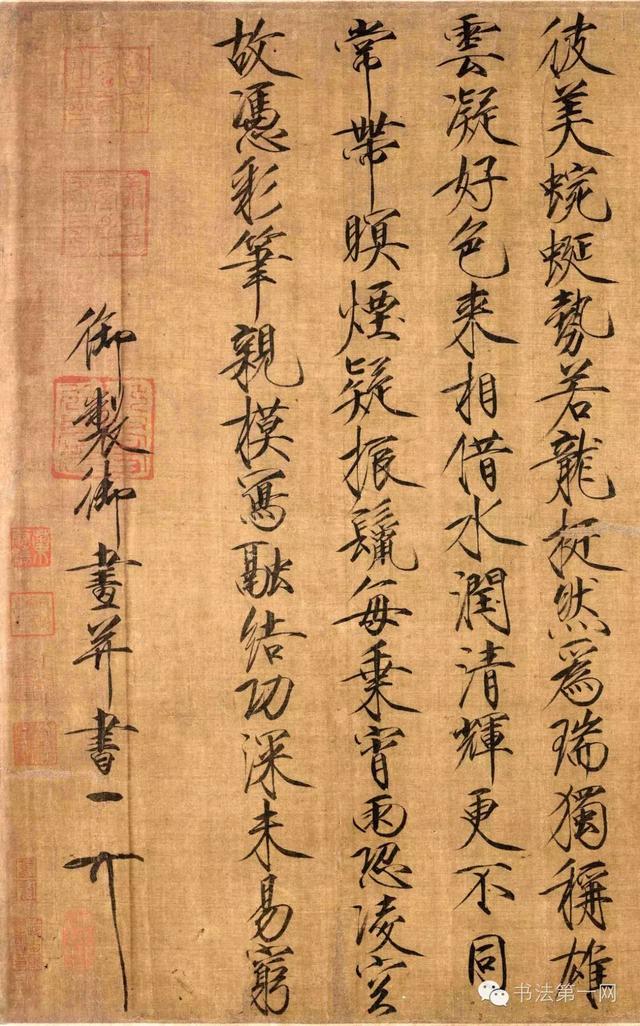 彼美蜿蜒勢若龍挺然爲瑞獨稱雄
雲凝好色来相借水潤清輝更不同
常帶瞑煙疑振鬣每乗宵雨恐凌空
故憑彩筆親模寫融結功深未易窮
御製御畫并書
书法第一网